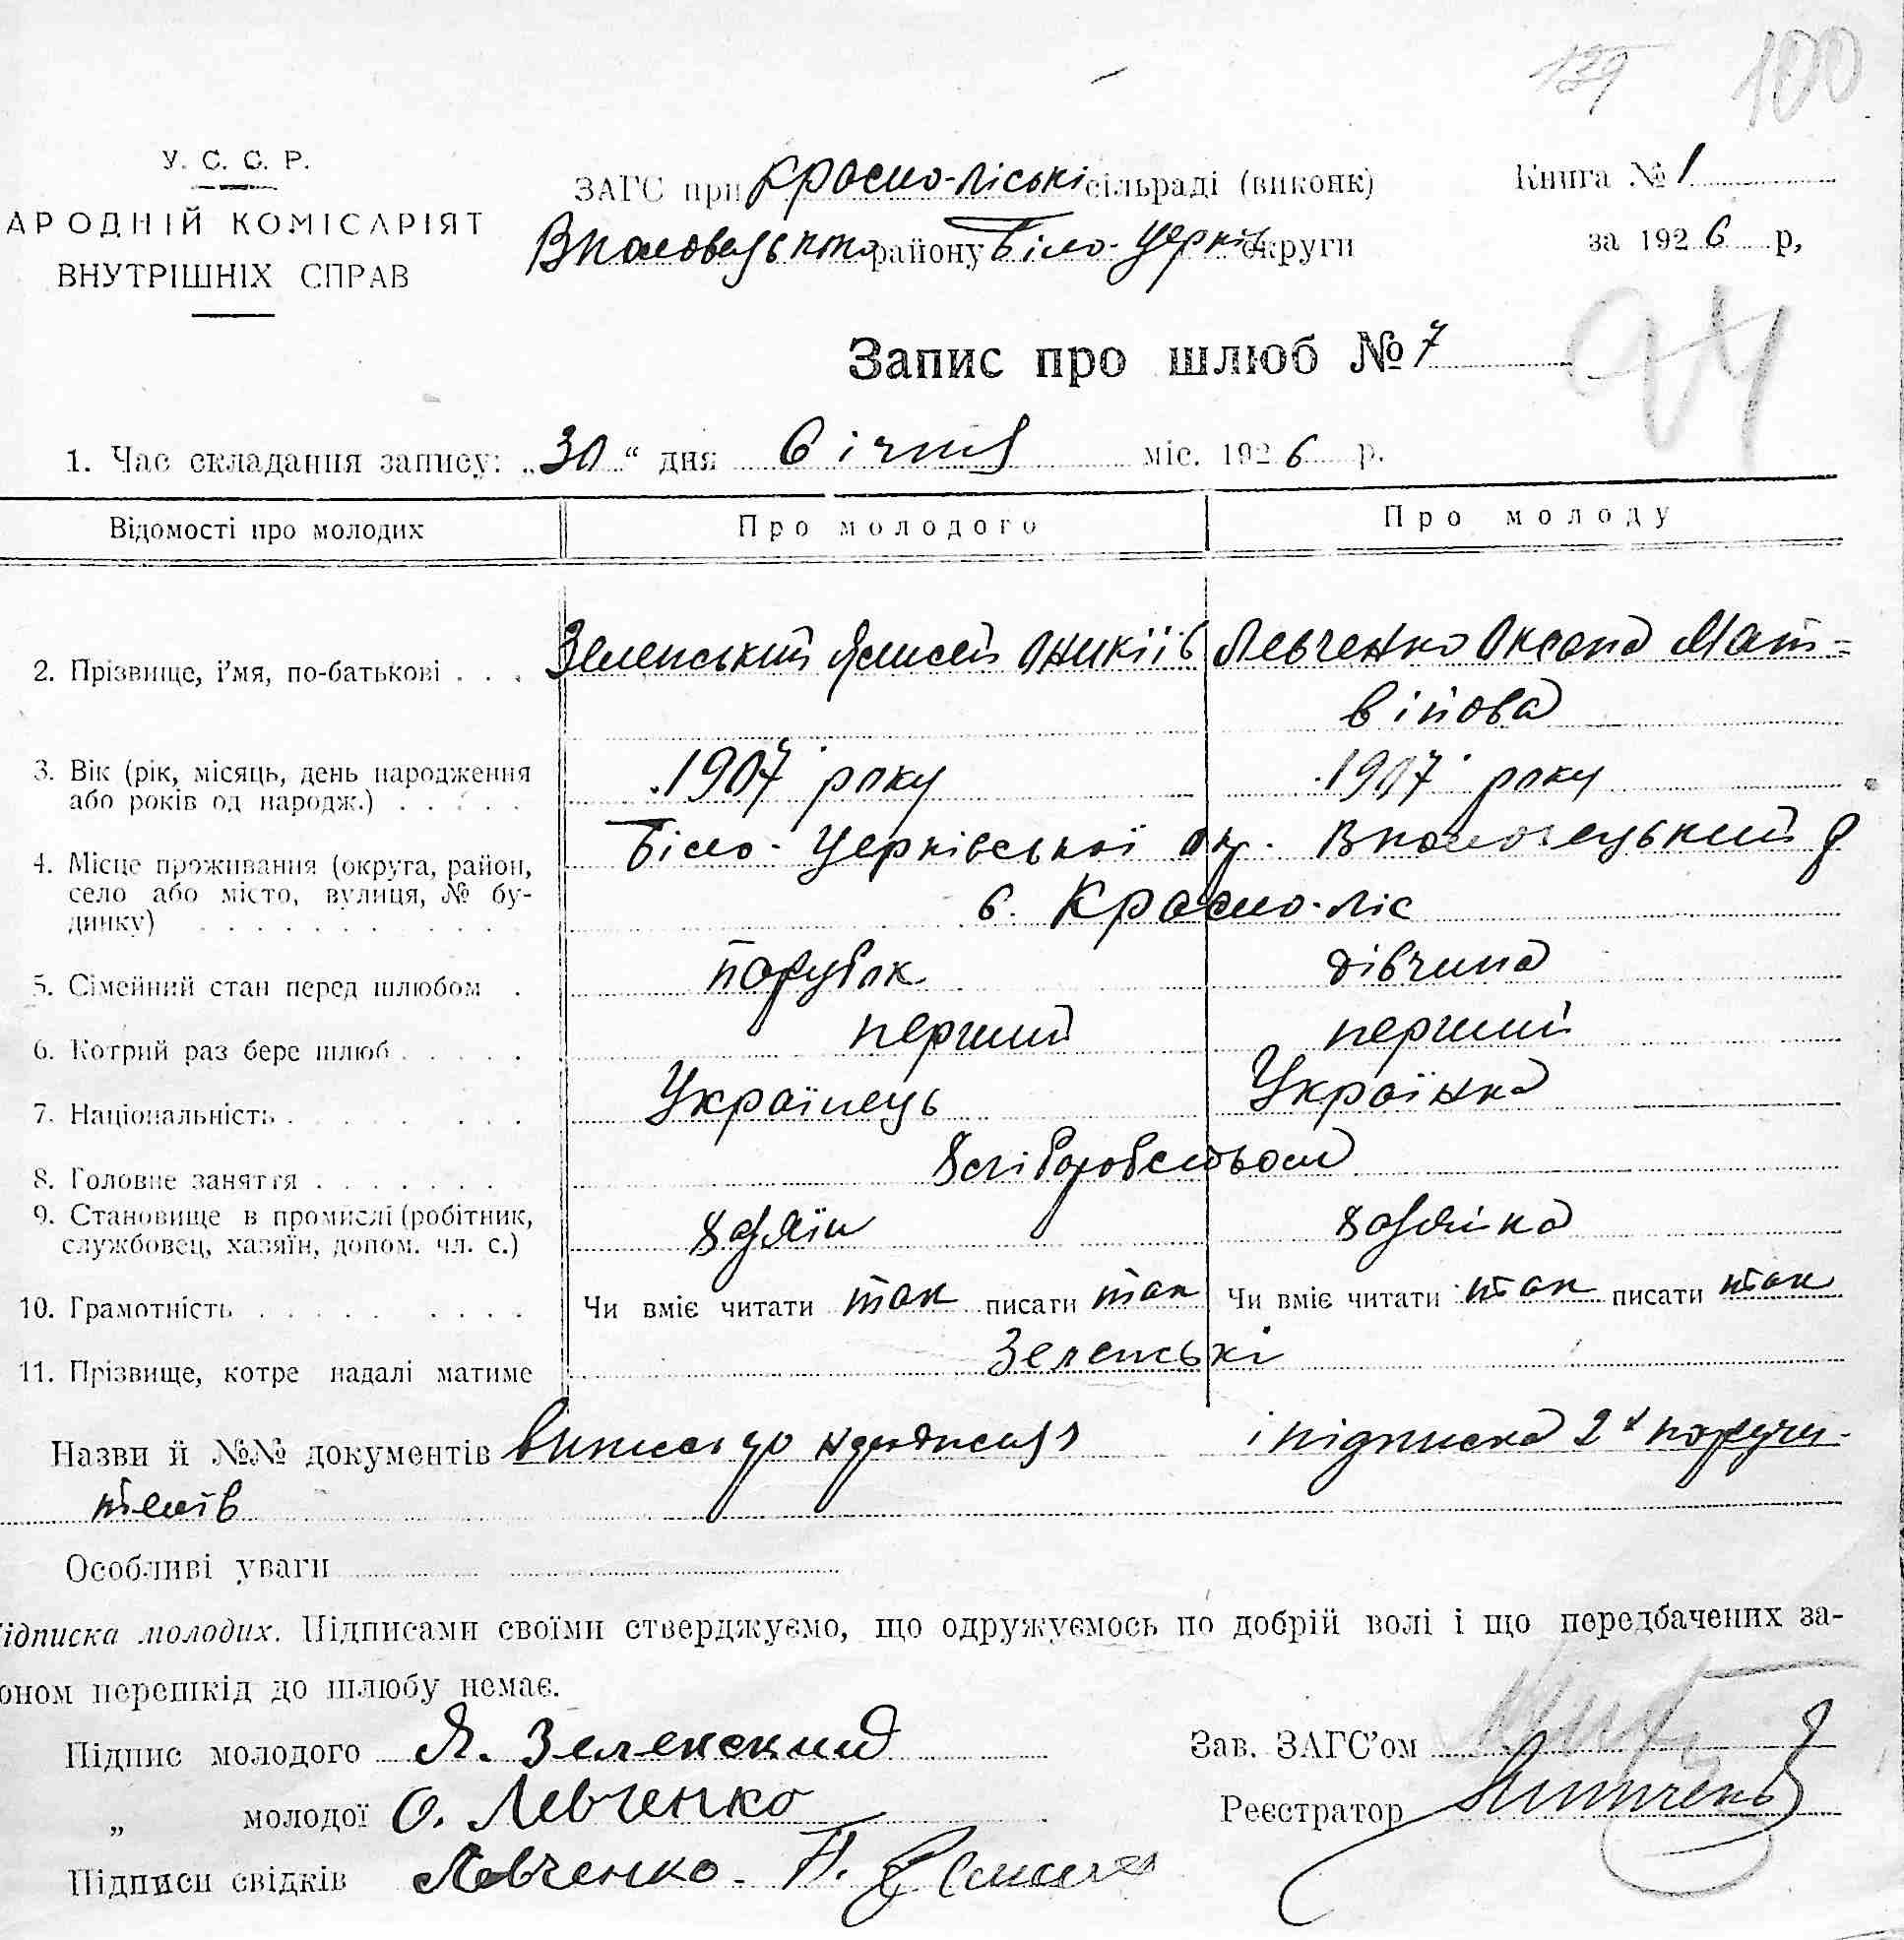 139 100
У. С. С. Р.
АРОДНІЙ КОМІСАРІЯТ
ВНУТРІШНІХ СПРАВ
ЗАГС при Красно-Ліські сільраді (виконк)
району Біло-Церків округи
Книга № 1
за 1926 р,
Запис про шлюб № 7
94
1. Час складання запису: „30“ дня січня міс. 1926 р.
Відомості про молодих Про молодого Про молоду
2. Прізвище, і'мя, по-батькові . . . Зеленський Аникіїв Левченко Оксана Мат=
війова
3. Вік (рік, місяць, день народження
або років од народж.) . . . . . 1907 року 1907 року
4. Місце проживання (округа, район,
село або місто, вулиця, № бу-
динку) . . . . . . . . . . Біло-Церківської окр.
с. Красно-ліс
5. Сімейний стан перед шлюбом . парубок дівчина
6. Котрий раз бере шлюб . . . . . перший перший
7. Національність . . . . . . . . Українець Українка
8. Головне заняття . . . . . . . хліборобством
9. Становище в промислі (робітник,
службовец, хазяїн, допом. чл. с.) хазяїн хазяїка
10. Грамотність . . . . . . . . . Чи вміє читати так писати так Чи вміє читати так писати так
11. Прізвище, котре надалі матиме Зеленські
Назви й №№ документів випись про і підписка 2х поручи-
телів
Особливі уваги
ідписка молодих. Підписами своїми стверджуємо, що одружуємось по добрій волі і що передбачених за-
оном перешкід до шлюбу немає.
Підпис молодого Я. Зеленский
„ молодої О. Левченко
Підписи свідків Левченко. П.
Зав. ЗАГС'ом
Реєстратор